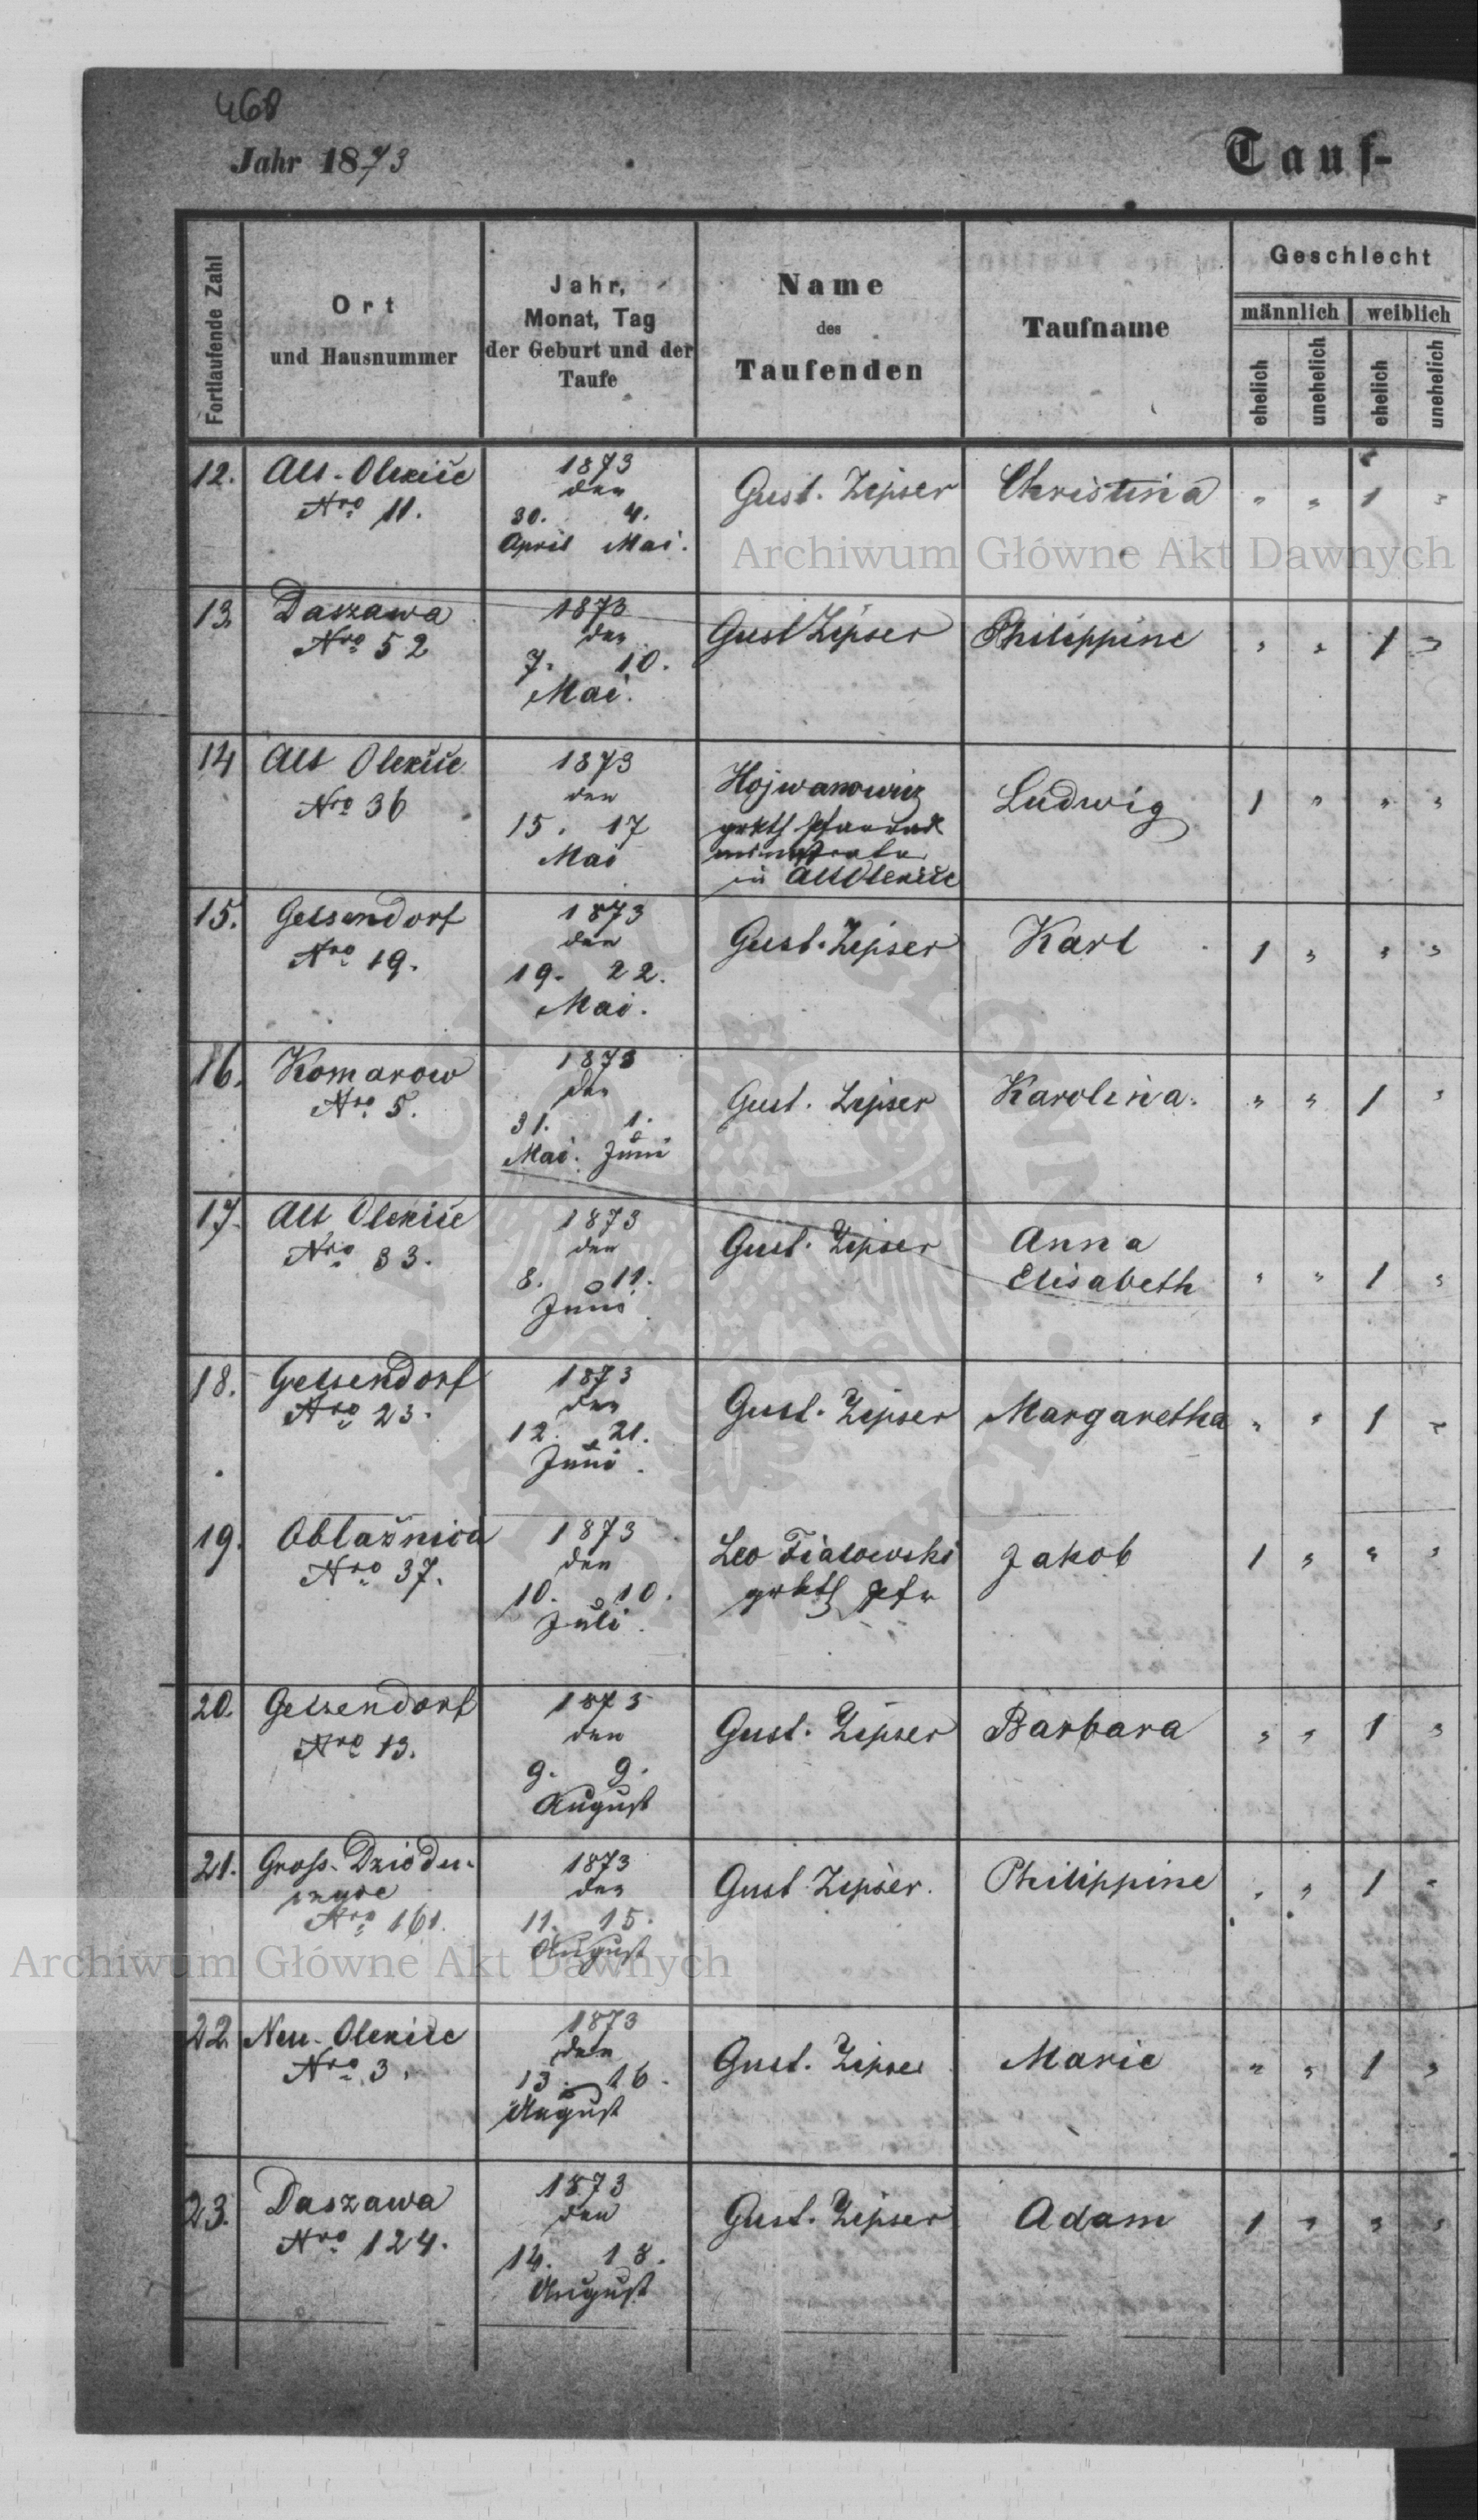 468
Jahr 1873
Tauf-
Fortlaufende Zahl
Ort
und Hausnummer
Jahr,
Monat, Tag
der Geburt und der
Taufe
Name
des
Taufenden
Taufname
Geschlecht
männlich
weiblich
ehelich
unehelich
ehelich
unehelich
12. Alt-Oleksice
Nro 11.
1873
den
30. 4.
April Mai.
Gust. Zipser
Christina
" " 1 "
Archiwum Główne Akt Dawnych
13. Daszawa
Nro 52
1873
den
7. 10.
Mai.
Gust Zipser
Philippine
" " 1 "
14 Alt Oleksice
Nro 36
1873
den
15. 17
Mai
Hojwanowicz
grkth
in Alt Oleksice
Ludwig
1 " " "
15. Gelsendorf
Nro 19.
1873
den
19. 22.
Mai.
Gust. Zipser
Karl
1 " " "
16. Komarow
Nro 5.
1873
den
31. 1.
Mai. Juni
Gust. Zipser
Karolina.
" " 1 "
17. Alt Oleksice
Nro 33.
1873
den
8. 11.
Juni
Gust. Zipser
Anna
Elisabeth
" " 1 "
18. Gelsendorf
Nro 23.
1873
den
12. 21.
Juni.
Gust. Zipser
Margaretha
" " 1 "
19. Oblažnica
Nro 37.
1873
den
10. 10.
Juli.
Leo Fialowski
grkth Pfr
Jakob
1 " " "
20. Gelsendorf
Nro 13.
1873
den
9. 9.
August
Gust. Zipser
Barbara
" " 1 "
21. Gross-Dziedu-
szyce
Nro 161.
1873
den
11. 15.
August
Gust Zipser.
Philippine
" " 1 "
Archiwum Główne Akt Dawnych
22 Neu-Oleksice
Nro 3.
1873
den
13. 16.
August
Gust. Zipser
Marie
" " 1 "
23. Daszawa
Nro 124.
1873
den
14. 18.
August
Gust. Zipser
Adam
1 " " "